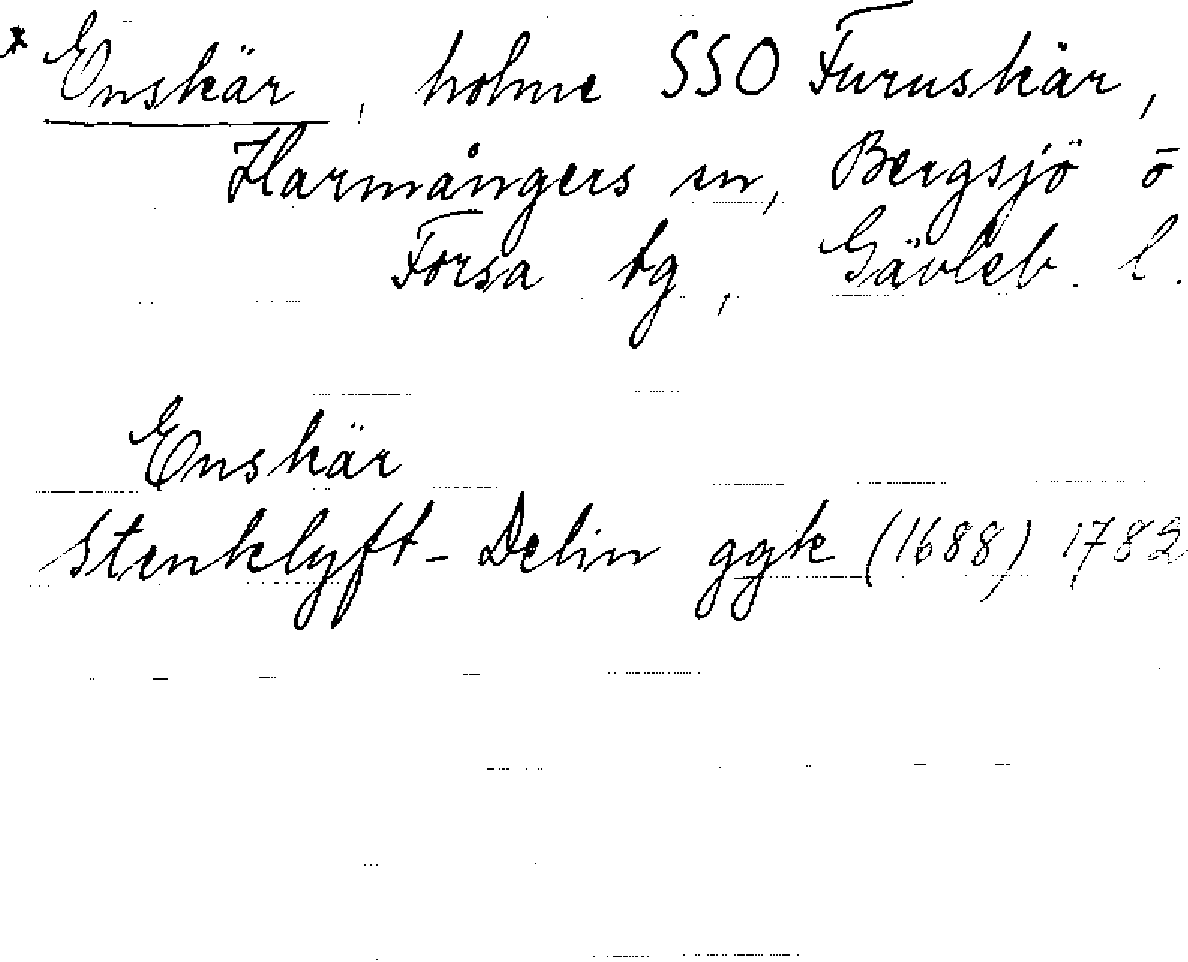 * Enskär, holme SSO Furuskär,
Harmångers sn, Bergsjö o
Forsa tg, Gävleb. l.
Enskär
Stenklyft-Delin ggk (1688) 1782